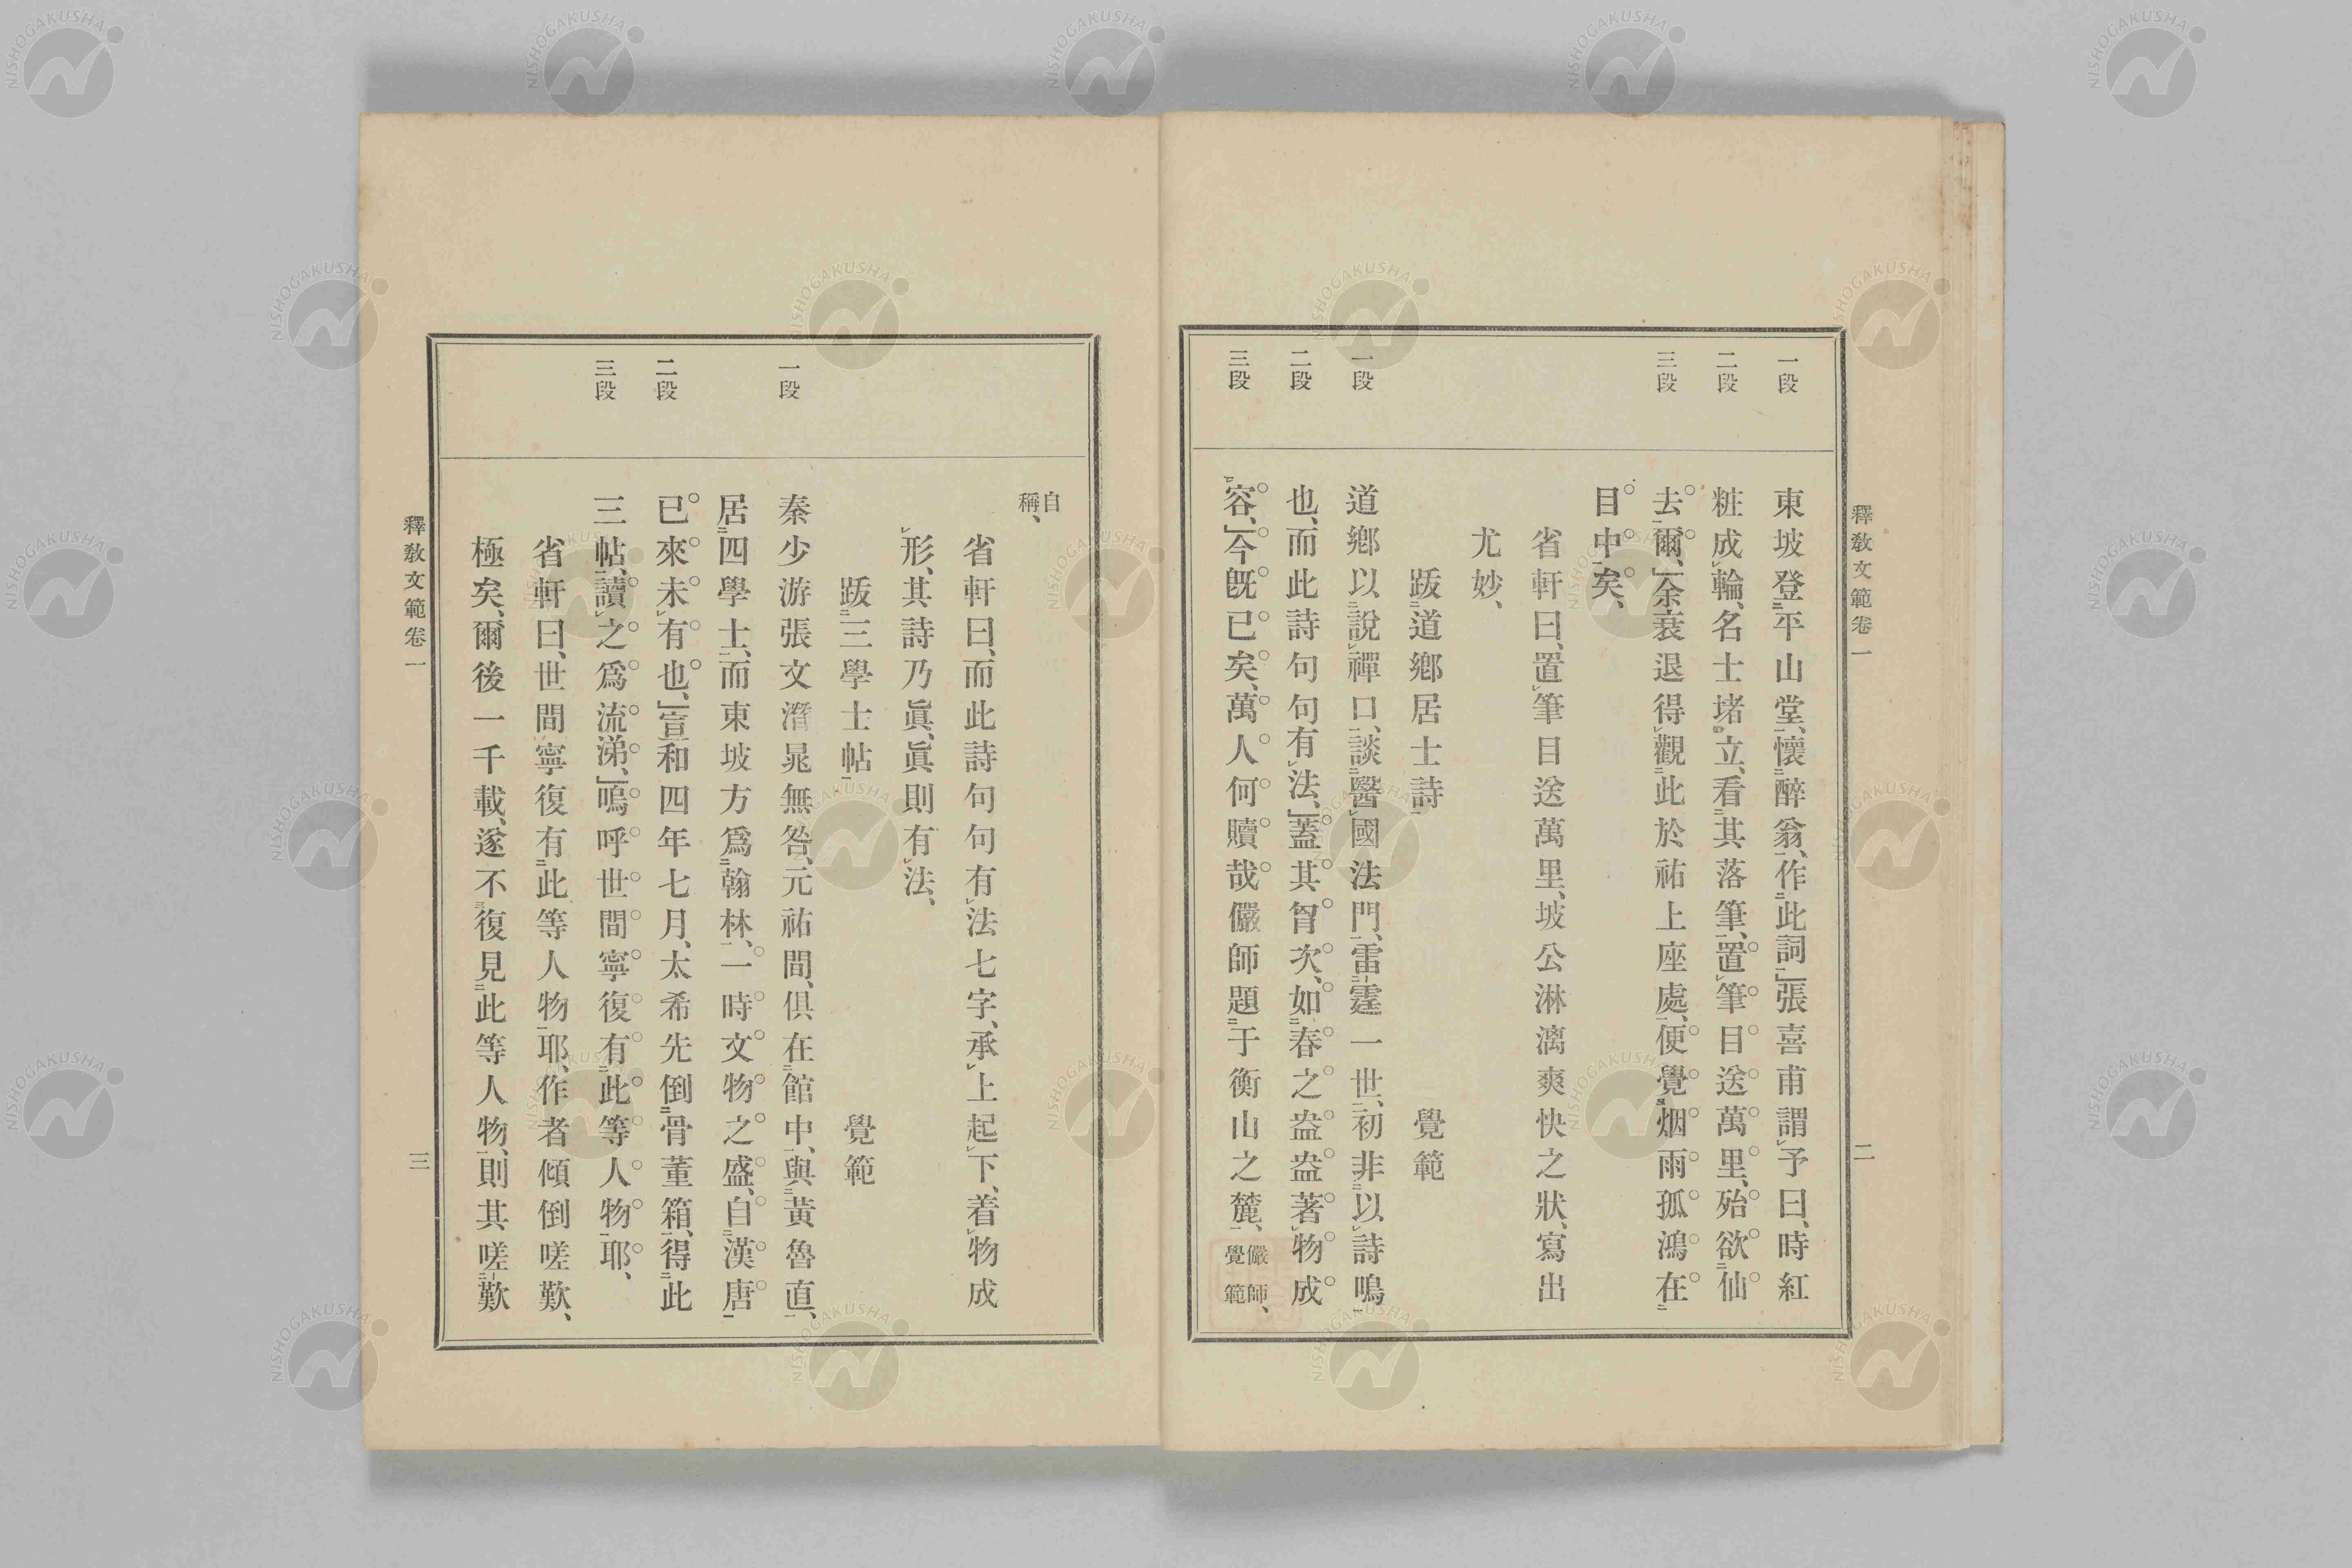 釋敎文範卷一
二
一段
二段
三段
一段
二段
三段
東坡登平山堂、懷醉翁、作此詞、張喜甫謂予曰、時紅
粧成輪、名士堵立、看其落筆、置筆目送萬里、殆欲仙
去爾、余衰退得觀此於祐上座處、便覺烟雨孤鴻在
目中矣、
省軒曰、置筆目送萬里、坡公淋漓爽快之狀、寫出
尤妙、
跋道鄕居士詩 覺範
道鄕以說禪口、談醫國法門、雷霆一世、初非以詩鳴
也、而此詩句句有法、蓋其胷次、如春之盎盎著物成
容、今旣已矣、萬人何贖哉儼師題于衡山之麓、儼師、覺範
自稱、
省軒曰、而此詩句句有法七字、承上起下、着物成
形、其詩乃眞、眞則有法、
跋三學士帖 覺範
一段
二段
三段
秦少游張文潛晁無咎、元祐間、俱在館中、與黃魯直、
居四學士、而東坡方爲翰林、一時文物之盛、自漢唐
已來未有也、宣和四年七月、太希先倒骨董箱、得此
三帖、讀之爲流涕、嗚呼世間寧復有此等人物耶、
省軒曰、世間寧復有此等人物耶、作者傾倒嗟歎、
極矣、爾後一千載、遂不復見此等人物、則其嗟歎
釋敎文範卷一
三
NISHOGAKUSHA